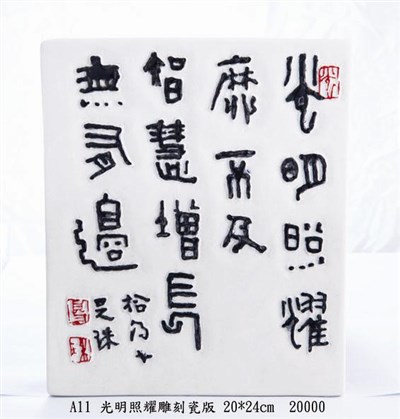 光明照耀
靡不及
智慧增長
無有邊
A11 光明照耀雕刻瓷版 20*24cm 20000